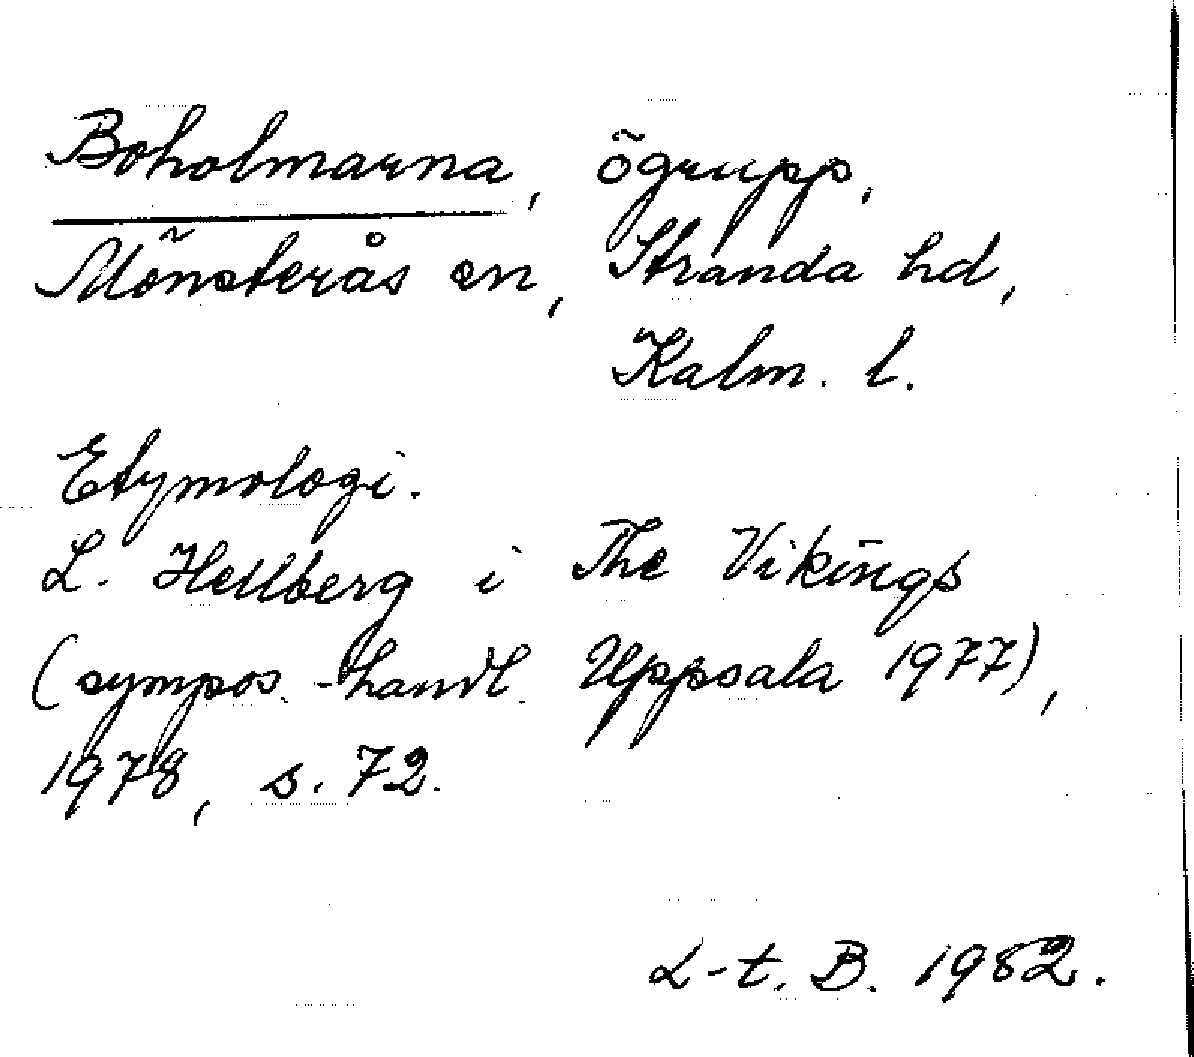 Boholmarna, ögrupp,
Mönsterås sn, Stranda hd,
Kalm. l.
Etymologi.
L. Hellberg i The Vikings
(sympos.-handl. Uppsala 1977),
1978, s. 72.
L-t. B. 1982.